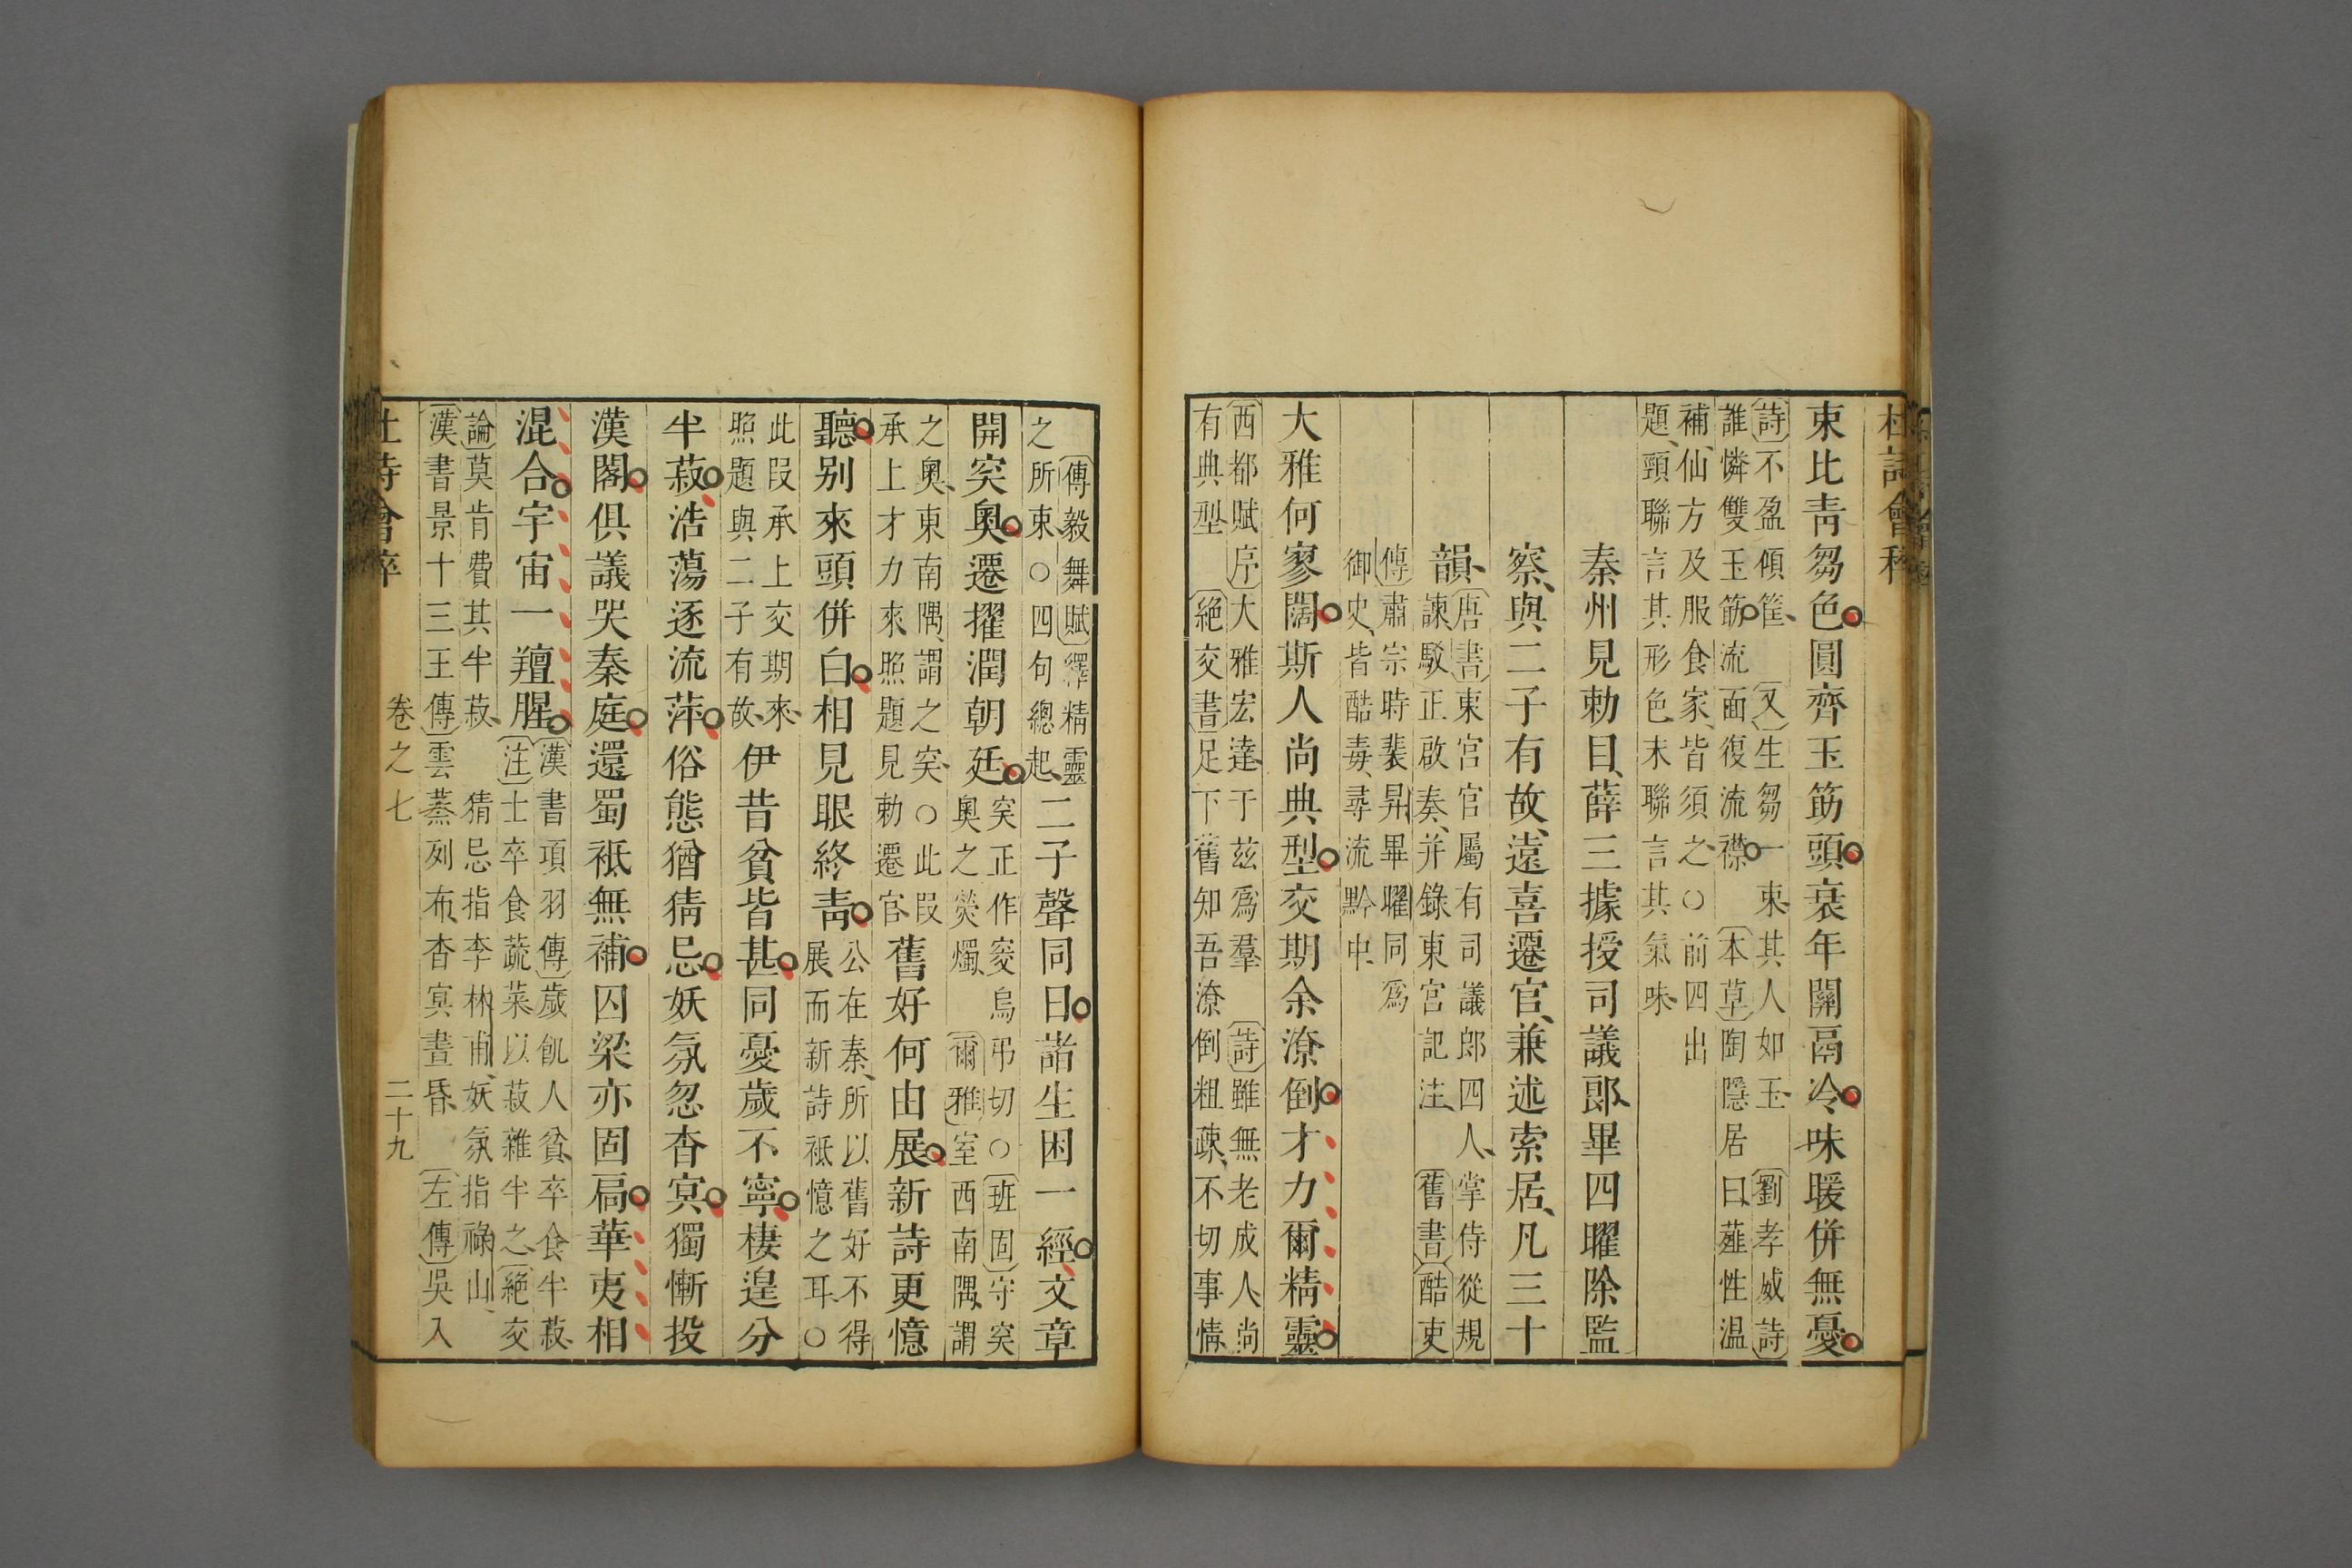 杜詩會稡
束比青芻色圓齊玉筯頭衰年關鬲冷味暖併無憂
詩不盈傾筐、又生芻一束、其人如玉、劉孝威詩
誰憐雙玉筯流面復流襟 本草陶隱居曰、薤性溫
補、仙方及服食家、皆須之、○前四出
題、頸聯言其形色、末聯言其氣味、
秦州見勅目、薛三據授司議郎、畢四曜除監
察、與二子有故、遠喜遷官、兼述索居、凡三十
韻、
唐書東宮官屬有司議郎四人、掌侍從規
諫駁正啟奏、并錄東宮記注、舊書酷吏
傳肅宗時裴昇畢曜同爲
御史、皆酷毒、尋流黔中、
大雅何寥闊斯人尚典型交期余潦倒才力爾精靈
西都賦序大雅宏達、于玆爲羣 詩雖無老成人尚
有典型 絕交書足下舊知吾潦倒粗疎、不切事情、
傳毅舞賦繹精靈
之所束、○四句總起、
二子聲同日諸生困一經文章
開穾奧遷擢潤朝廷
穾正作窔烏弔切○班固守穾
奧之熒燭、爾雅室西南隅、謂
之奧、東南隅、謂之穾、○此段
承上才力來照題見勅遷官、
舊好何由展新詩更憶
聽別來頭併白相見眼終青
公在秦、所以舊好不得
展而新詩祗憶之耳、○
此段承上交期來、
照題與二子有故、
伊昔貧皆甚同憂歲不寧棲遑分
半菽浩蕩逐流萍俗態猶猜忌妖氛忽杳冥獨慚投
漢閣俱議哭秦庭還蜀祗無補囚梁亦固扃華夷相
混合宇宙一羶腥
漢書項羽傳歲飢人貧、卒食半菽、
注士卒食蔬菜以菽雜半之、絕交
論莫肯費其半菽、猜忌指李林甫、妖氛指祿山、
漢書景十三王傳雲蒸列布、杳冥晝昏、左傳吳入
杜詩會稡 卷之七 二十九